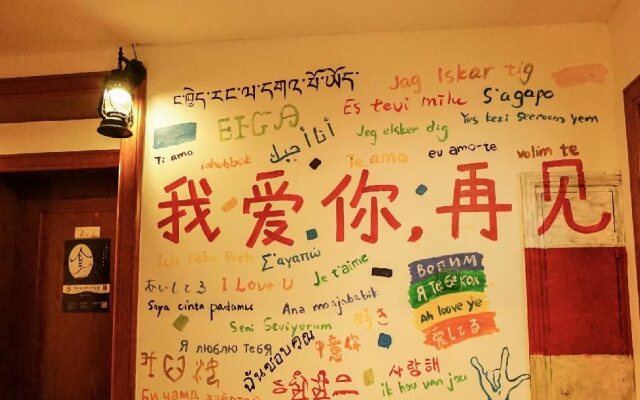 ང་ཁྱེད་རང་ལ་དགའ་པོ་ཡོད་
Jag Iskar tig
Es tevi mīlu
S'agapo
Jeg elsker dig
Yes kezi seeroom yem
أنا أحبك
Ti amo
inhobbok
Te amo
eu amo-te
volim te
我爱你,再见
Ich liebe Dich
Σ'αγαπώ
Je t'aime
あいしてる
I Love U
Saya cinta padamu
Ana moajababik
Seni Seviyorum
Волим
Я тебе кох
Ah loove ye
愛してる
好き
Я люблю тебя
ฉันชอบคุณ
憶你
사랑해
ik hou van jou